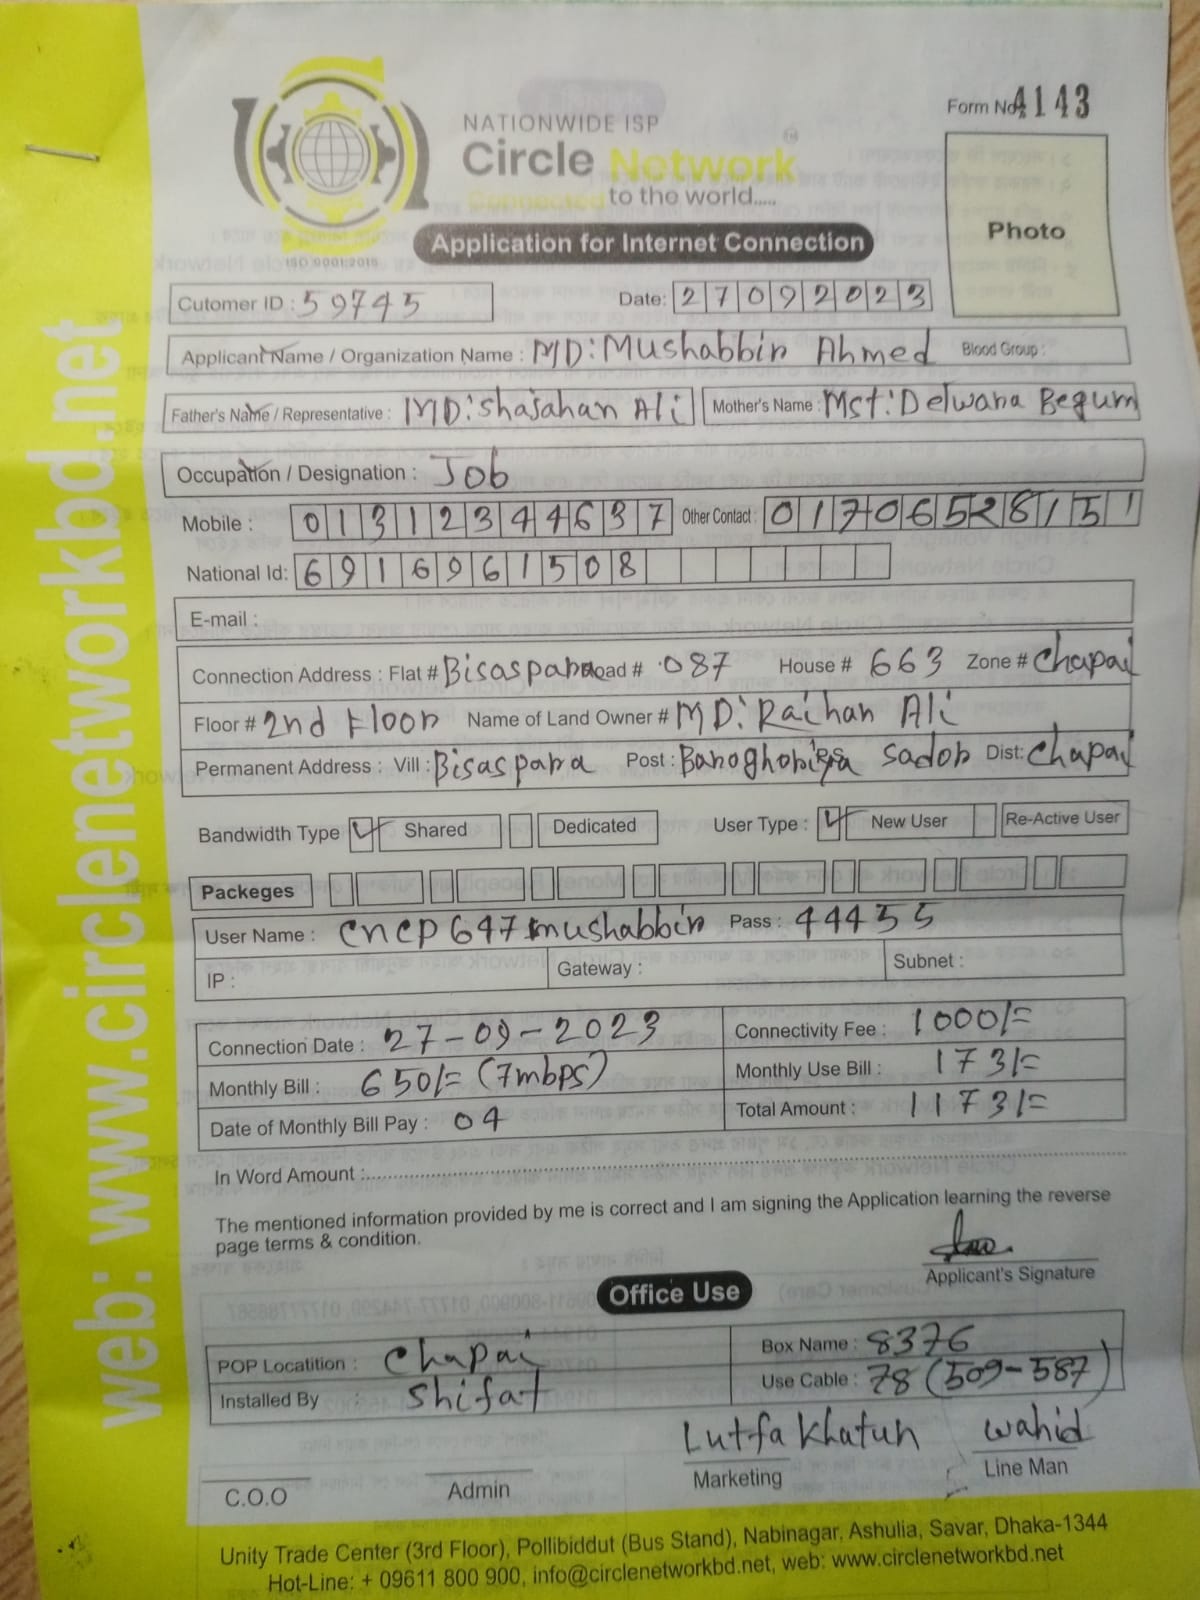 Form No. 4143
NATIONWIDE ISP
Circle Network
Connected to the world.....
ISO 9001:2015
Application for Internet Connection
Photo
Cutomer ID : 59745 Date: 27092023
Applicant Name / Organization Name : MD: Mushabbir Ahmed Blood Group :
Father's Name / Representative : MD: Shajahan Ali Mother's Name : Mst: Delwara Begum
Occupation / Designation : Job
Mobile : 01312344637 Other Contact : 01706528151
National Id: 6916961508
E-mail :
Connection Address : Flat # Bisaspara Road # 087 House # 663 Zone # Chapai
Floor # 2nd Floor Name of Land Owner # MD: Raihan Ali
Permanent Address : Vill : Bisaspara Post : Baroghoriya Sador Dist: Chapai
Bandwidth Type Shared Dedicated User Type : New User Re-Active User
Packeges
User Name : cncp647mushabbir Pass : 44455
IP : Gateway : Subnet :
Connection Date : 27-09-2023 Connectivity Fee : 1000/=
Monthly Bill : 650/= (7mbps) Monthly Use Bill : 173/=
Date of Monthly Bill Pay : 04 Total Amount : 1173/=
In Word Amount :
The mentioned information provided by me is correct and I am signing the Application learning the reverse
page terms & condition.
Applicant's Signature
Office Use
POP Locatition : Chapai Box Name : 8376
Installed By : Shifat Use Cable : 78 (509-587)
Lutfa Khatun Wahid
C.O.O Admin Marketing Line Man
Unity Trade Center (3rd Floor), Pollibiddut (Bus Stand), Nabinagar, Ashulia, Savar, Dhaka-1344
Hot-Line: + 09611 800 900, info@circlenetworkbd.net, web: www.circlenetworkbd.net
web: www.circlenetworkbd.net